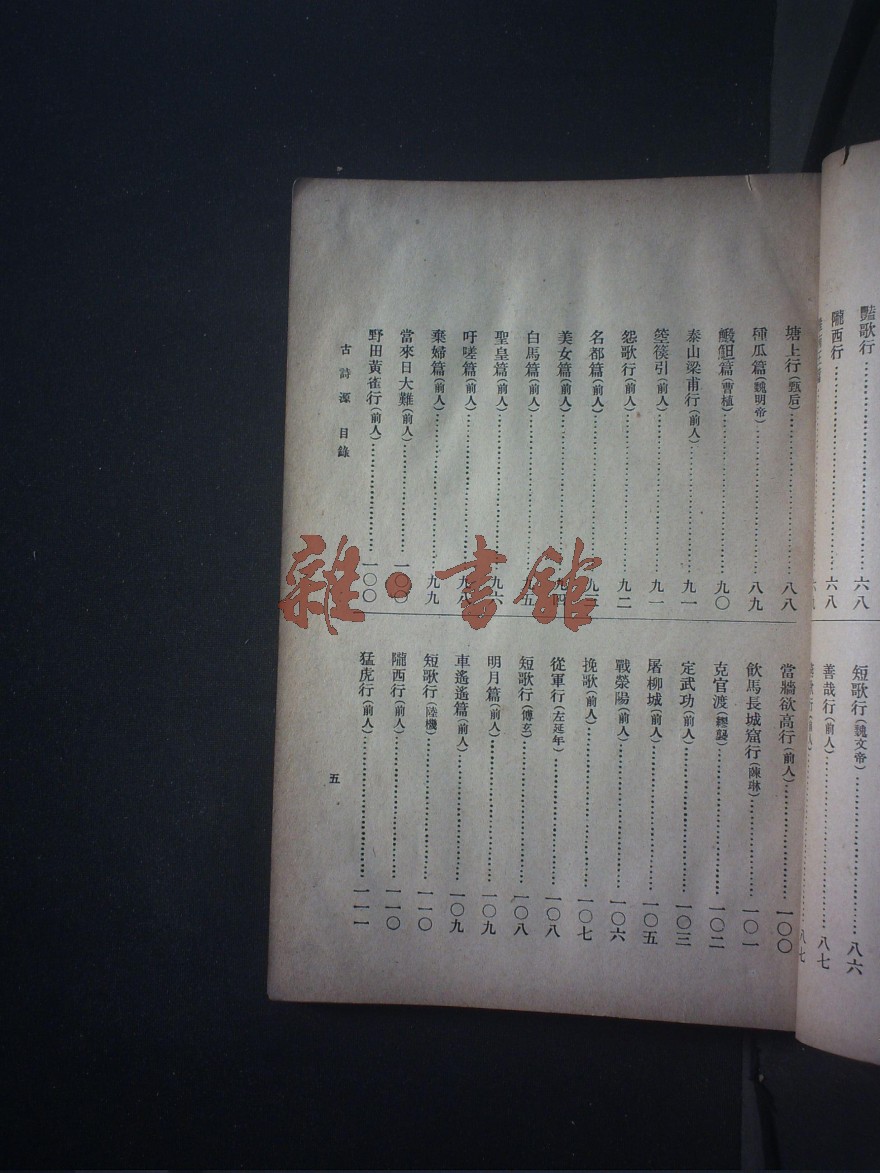 豔歌行……六八
隴西行……六八
短歌行(魏文帝)……八六
善哉行(前人)……八七
塘上行(甄后)……八八
種瓜篇(魏明帝)……八九
鰕䱇篇(曹植)……九〇
泰山梁甫行(前人)……九一
箜篌引(前人)……九一
怨歌行(前人)……九二
名都篇(前人)……九三
美女篇(前人)……九四
白馬篇(前人)……九五
聖皇篇(前人)……九六
吁嗟篇(前人)……九八
棄婦篇(前人)……九九
當來日大難(前人)……一〇〇
野田黃雀行(前人)……一〇〇
當牆欲高行(前人)……一〇〇
飲馬長城窟行(陳琳)……一〇一
克官渡(繆襲)……一〇二
定武功(前人)……一〇三
屠柳城(前人)……一〇五
戰滎陽(前人)……一〇六
挽歌(前人)……一〇七
從軍行(左延年)……一〇八
短歌行(傅玄)……一〇八
明月篇(前人)……一〇九
車遙遙篇(前人)……一〇九
短歌行(陸機)……一一〇
隴西行(前人)……一一〇
猛虎行(前人)……一一一
古詩源 目錄
五
雜·書館